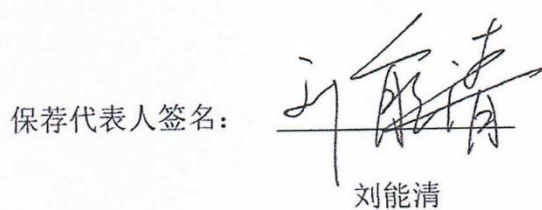 保荐代表人签名：刘能清
刘能清